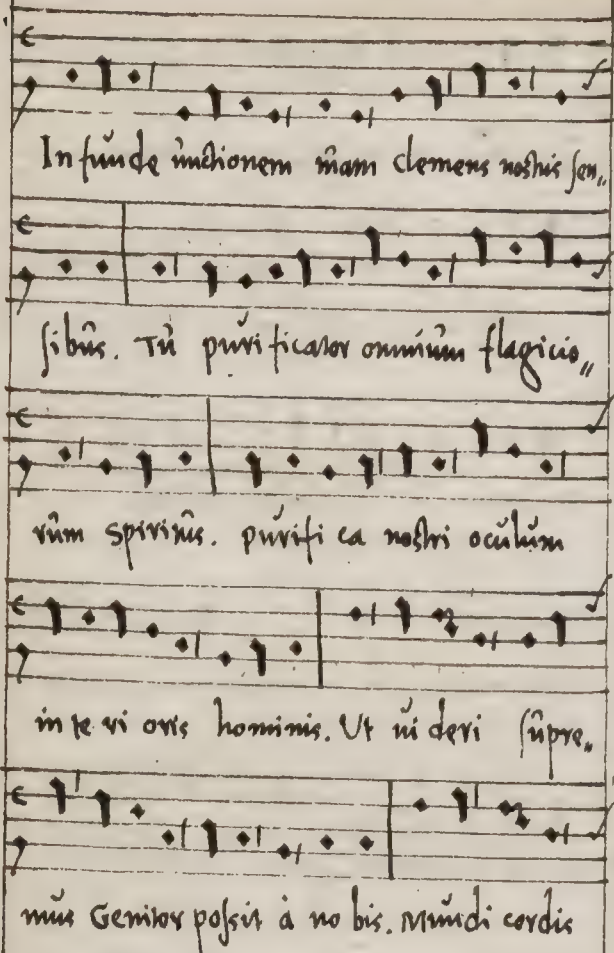 In funde unctionem tuam clemens nostris sen„
sibus. Tu purificator omnium flagicio„
rum spiritus. purifi ca nostri oculum
in te ri oris hominis. Ut ui deri supre„
mus Genitor possit à no bis. Mundi cordis